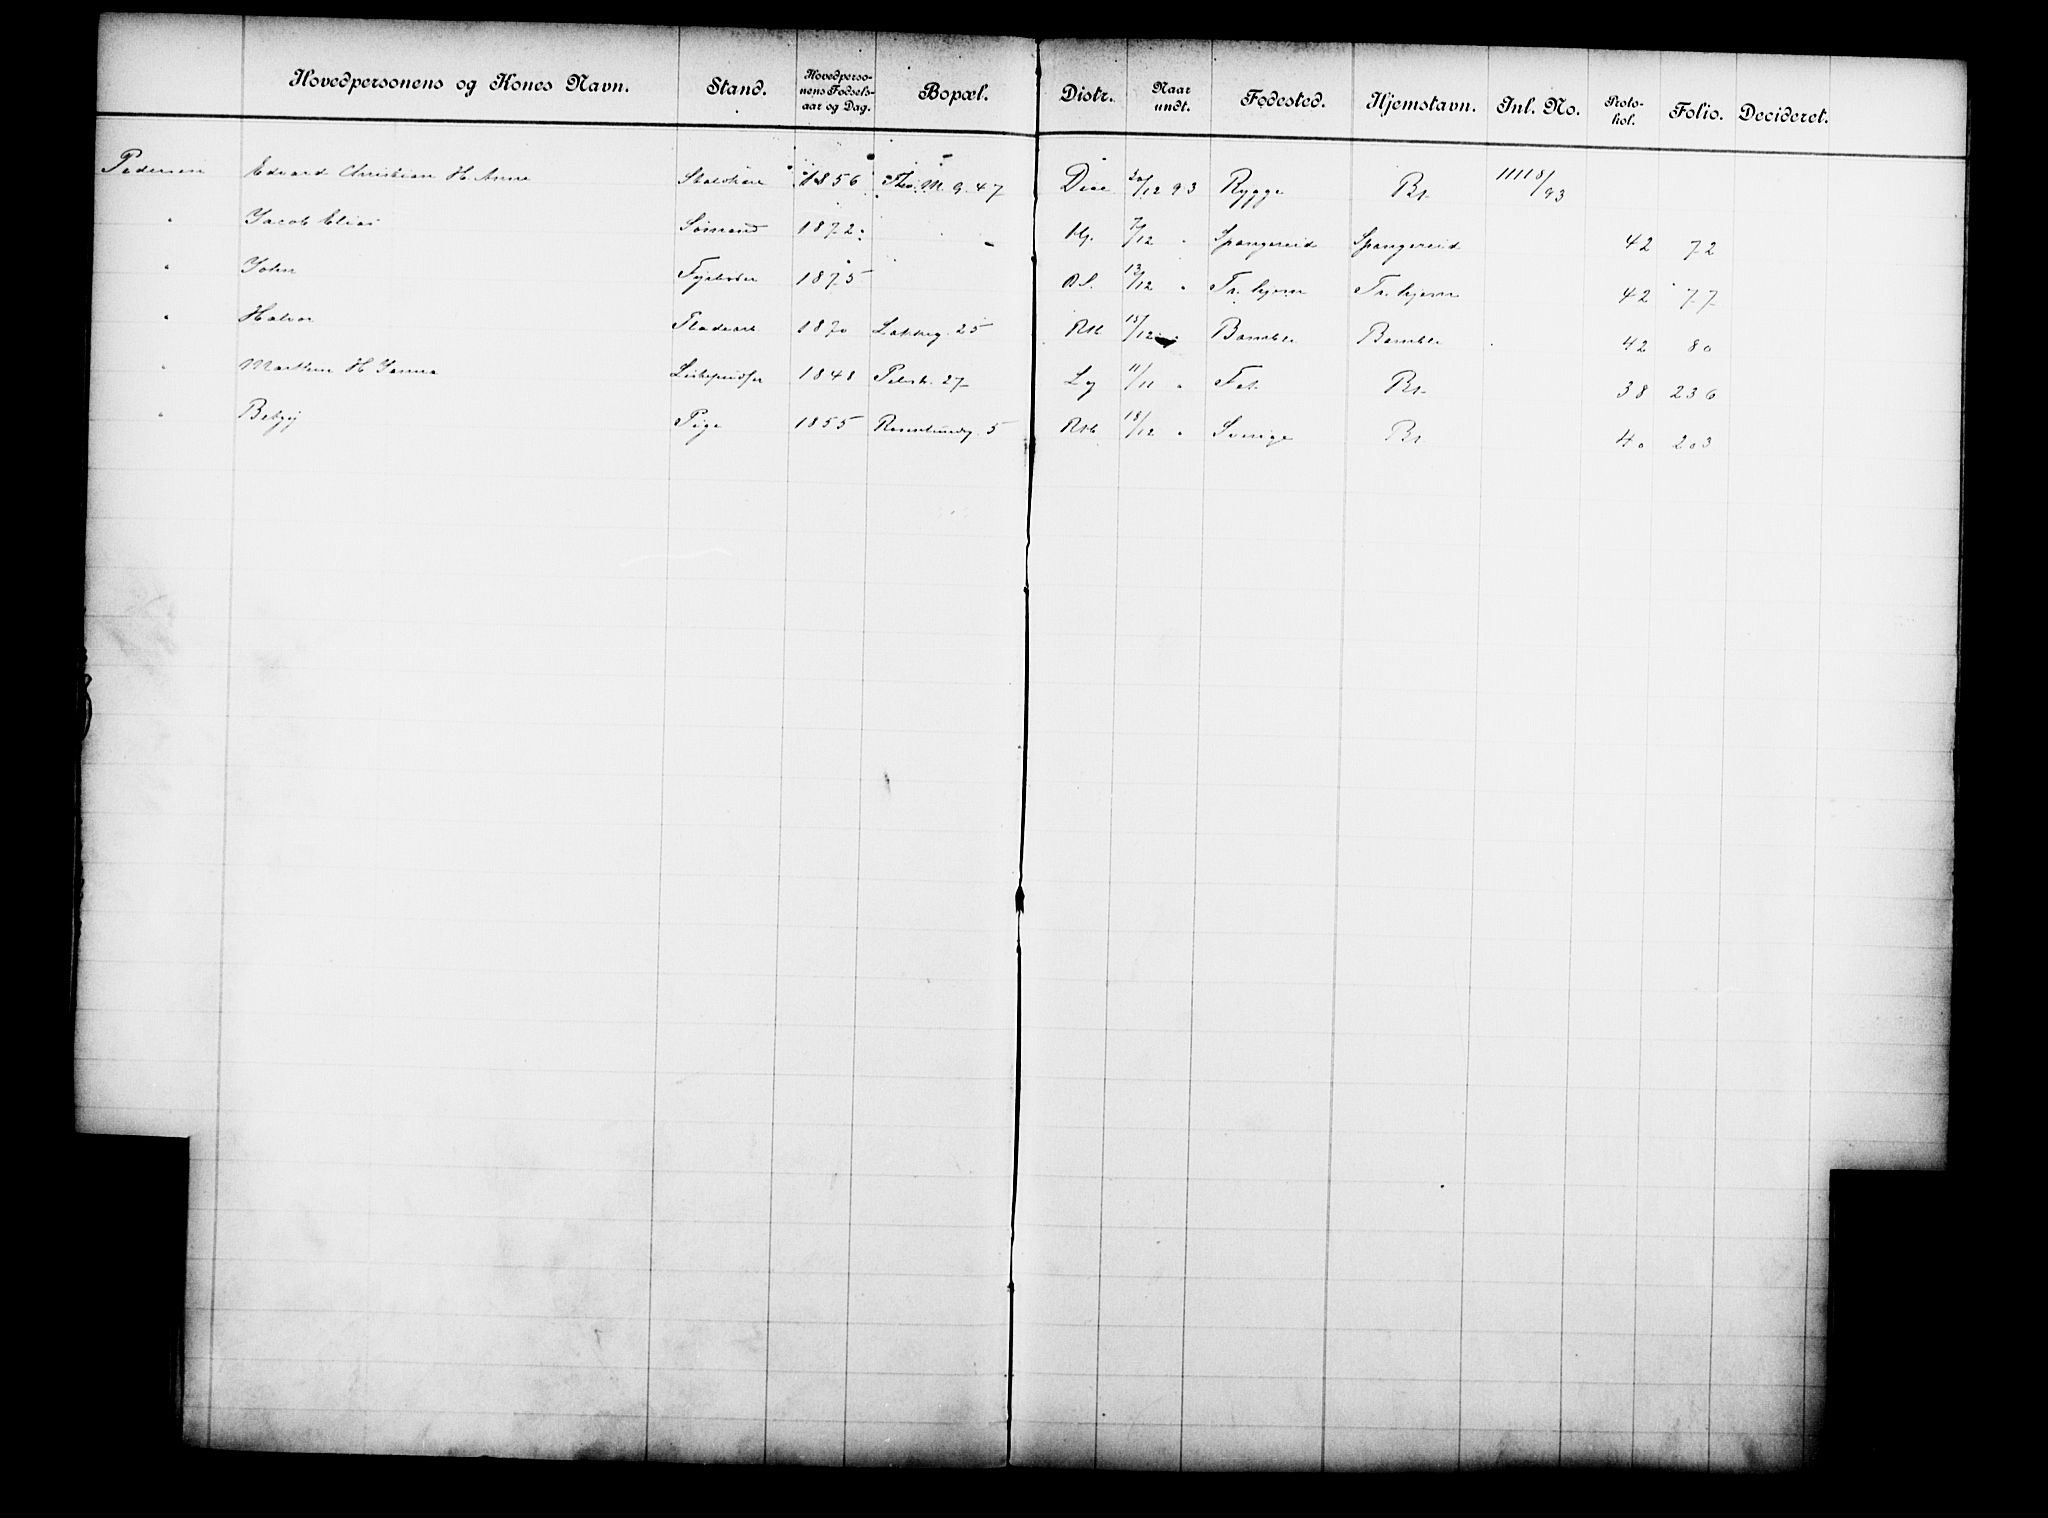 Hovedpersonens og Kones Navn. Stand. Hovedpersonens Fødselsaar og Dag. Bopæl. Distr. Naar undt. Fødested. Hjemstavn. Inl. No. Protokol. Folio. Decideret.
Pedersen Edvard Christian H. Anna 1856 Tho. M. g. 47 20/12 93 Rygge Br. 11118/93
" Jacob Elias Sømand 1872 Hj. 7/12 " Spangereid Spangereid 42 72
" John Fyrbøder 1875 12/12 " Tr.hjem Tr.hjem 42 77
" Halvor 1870 Lakkeg. 25 RM 15/12 " Bamble Bamble 42 80
" H. Janna 1848 Pilestr. 27 Lg 11/11 " Fet Br. 38 236
" Betzy Pige 1855 Rosenlundg. 5 RM 18/12 " Sverige Br. 40 203